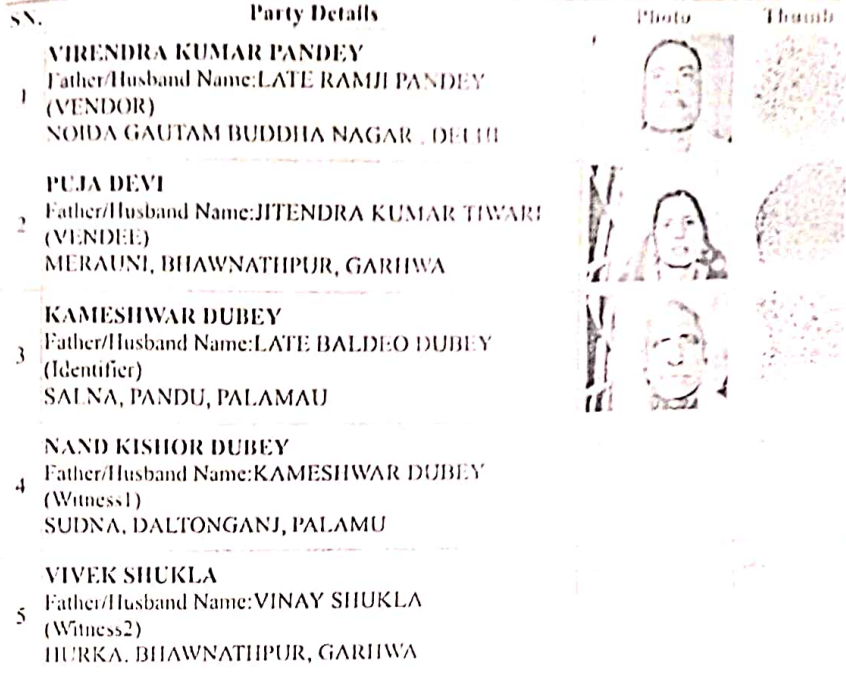 SN. Party Details Photo Thumb
1
VIRENDRA KUMAR PANDEY
Father/Husband Name:LATE RAMJI PANDEY
(VENDOR)
NOIDA GAUTAM BUDDHA NAGAR , DELHI
2
PUJA DEVI
Father/Husband Name:JITENDRA KUMAR TIWARI
(VENDEE)
MERAUNI, BHAWNATHPUR, GARHWA
3
KAMESHWAR DUBEY
Father/Husband Name:LATE BALDEO DUBEY
(Identifier)
SALNA, PANDU, PALAMAU
4
NAND KISHOR DUBEY
Father/Husband Name:KAMESHWAR DUBEY
(Witness1)
SUDNA, DALTONGANJ, PALAMU
5
VIVEK SHUKLA
Father/Husband Name:VINAY SHUKLA
(Witness2)
HURKA, BHAWNATHPUR, GARHWA